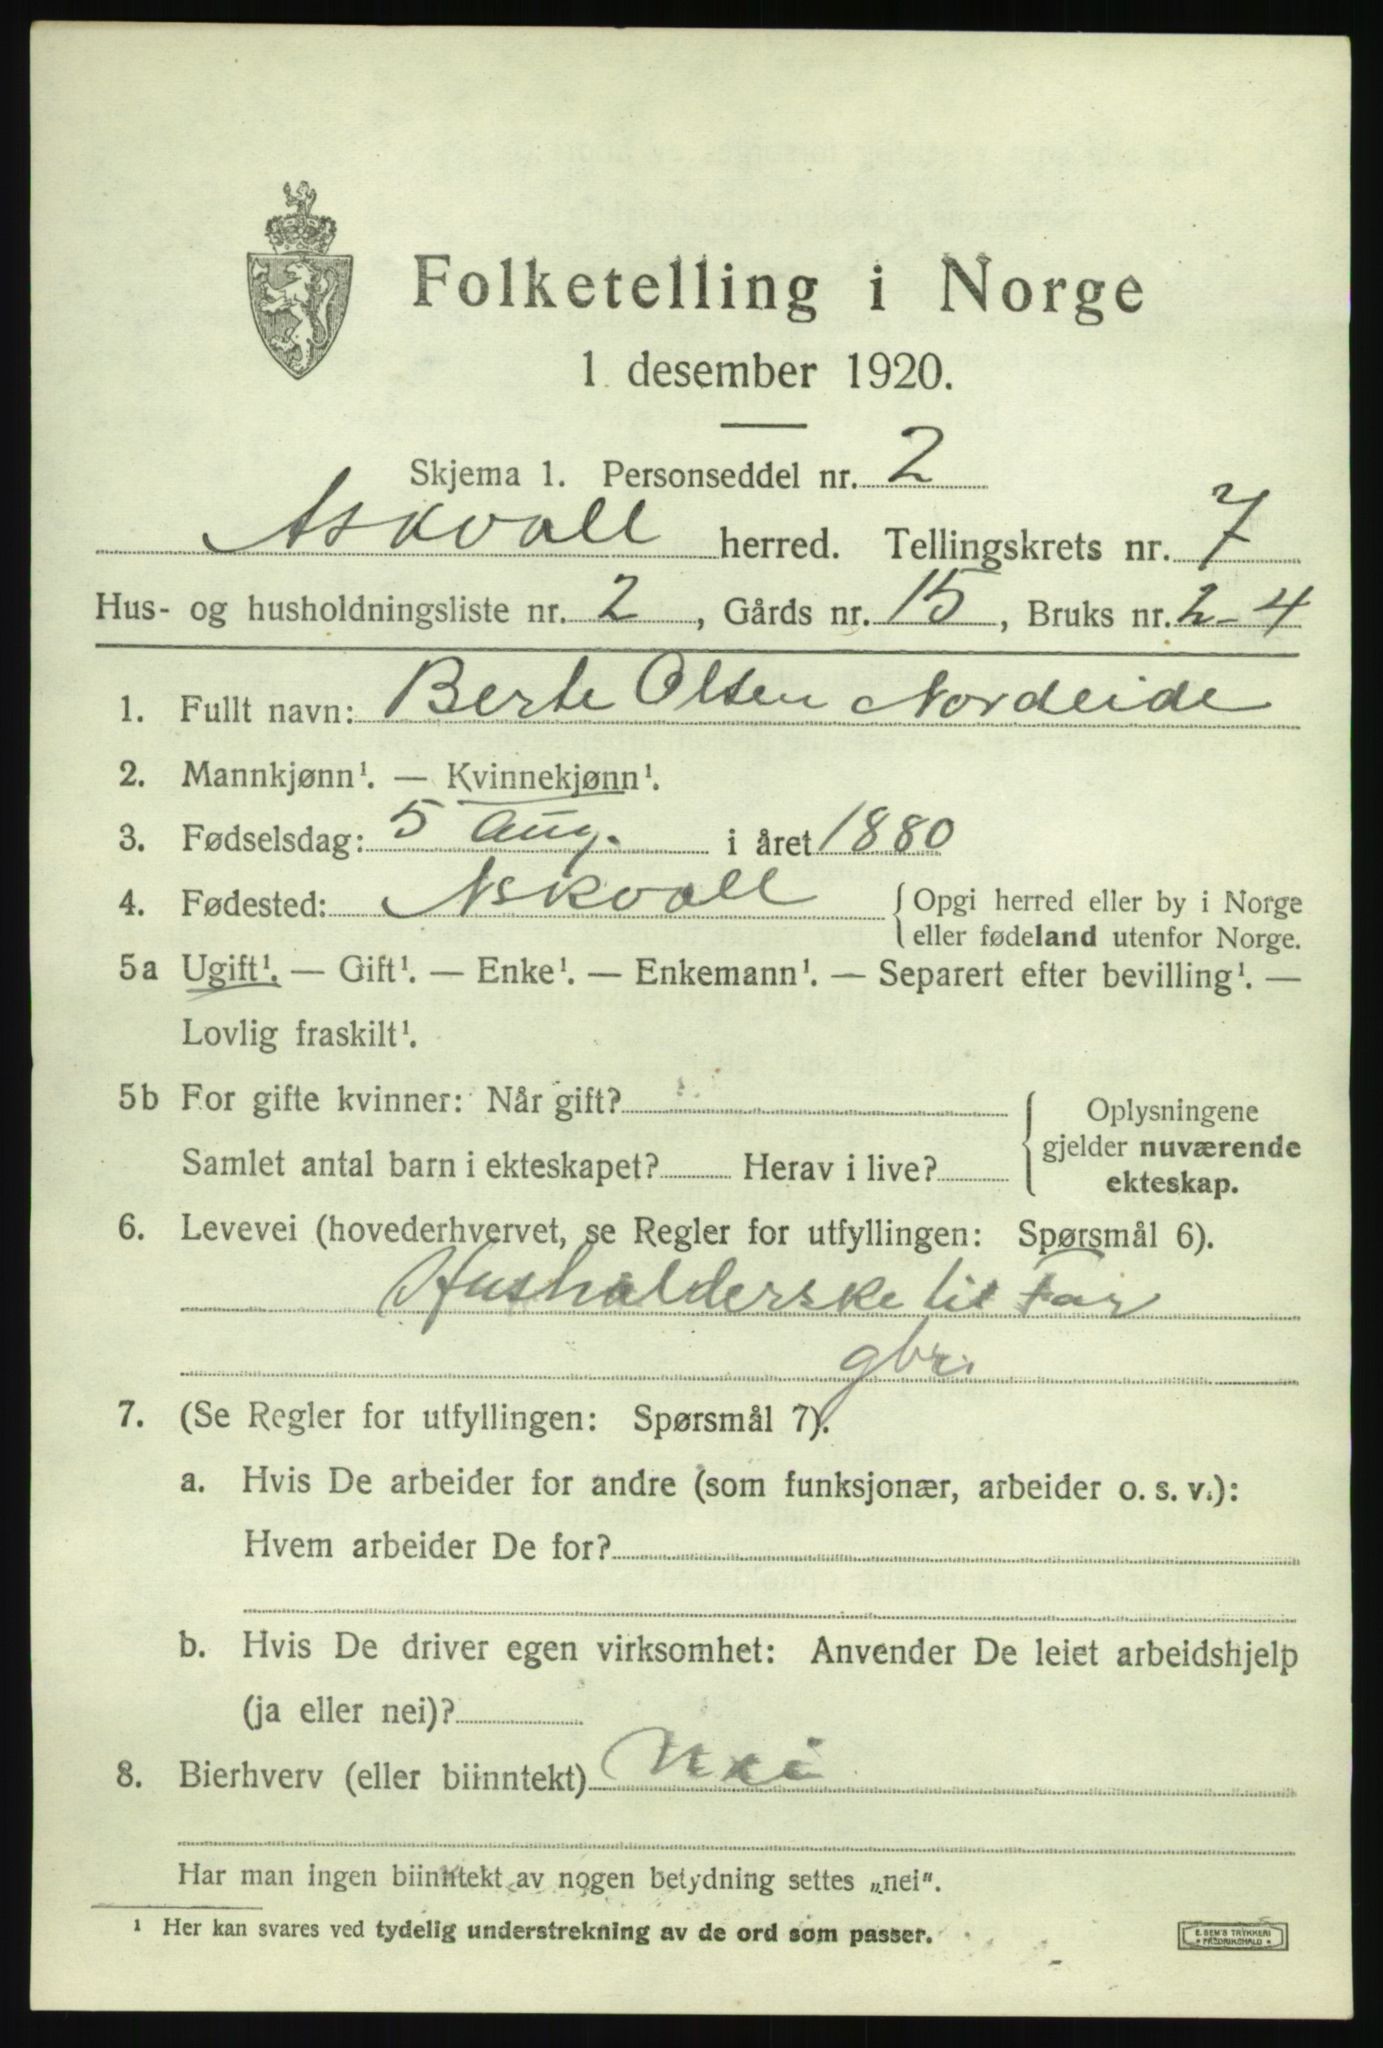 Folketelling i Norge
1. desember 1920.
Skjema 1. Personseddel nr. 2
Askvoll herred. Tellingskrets nr. 7
Hus- og husholdningsliste nr. 2, Gårds nr. 15, Bruks nr. 2-4
1. Fullt navn: Berte Olsen Nordeide
2. Mannkjønn¹. — Kvinnekjønn¹.
3. Fødselsdag: 5 Aug. i året 1880
4. Fødested: Askvoll { Opgi herred eller by i Norge
eller fødeland utenfor Norge.
5a Ugift¹. — Gift¹. — Enke¹. — Enkemann¹. — Separert efter bevilling¹. —
Lovlig fraskilt¹.
5b For gifte kvinner: Når gift?
Samlet antal barn i ekteskapet? Herav i live?
Oplysningene
gjelder nuværende
ekteskap.
6. Levevei (hovederhvervet, se Regler for utfyllingen: Spørsmål 6).
Husholderske til Far
gbr.
7. (Se Regler for utfyllingen: Spørsmål 7).
a. Hvis De arbeider for andre (som funksjonær, arbeider o. s. v.):
Hvem arbeider De for?
b. Hvis De driver egen virksomhet: Anvender De leiet arbeidshjelp
(ja eller nei)?
8. Bierhverv (eller biinntekt) Nei
Har man ingen biinntekt av nogen betydning settes „nei".
¹ Her kan svares ved tydelig understrekning av de ord som passer.
E. SEM'S TRYKKERI
FREDRIKSHALD